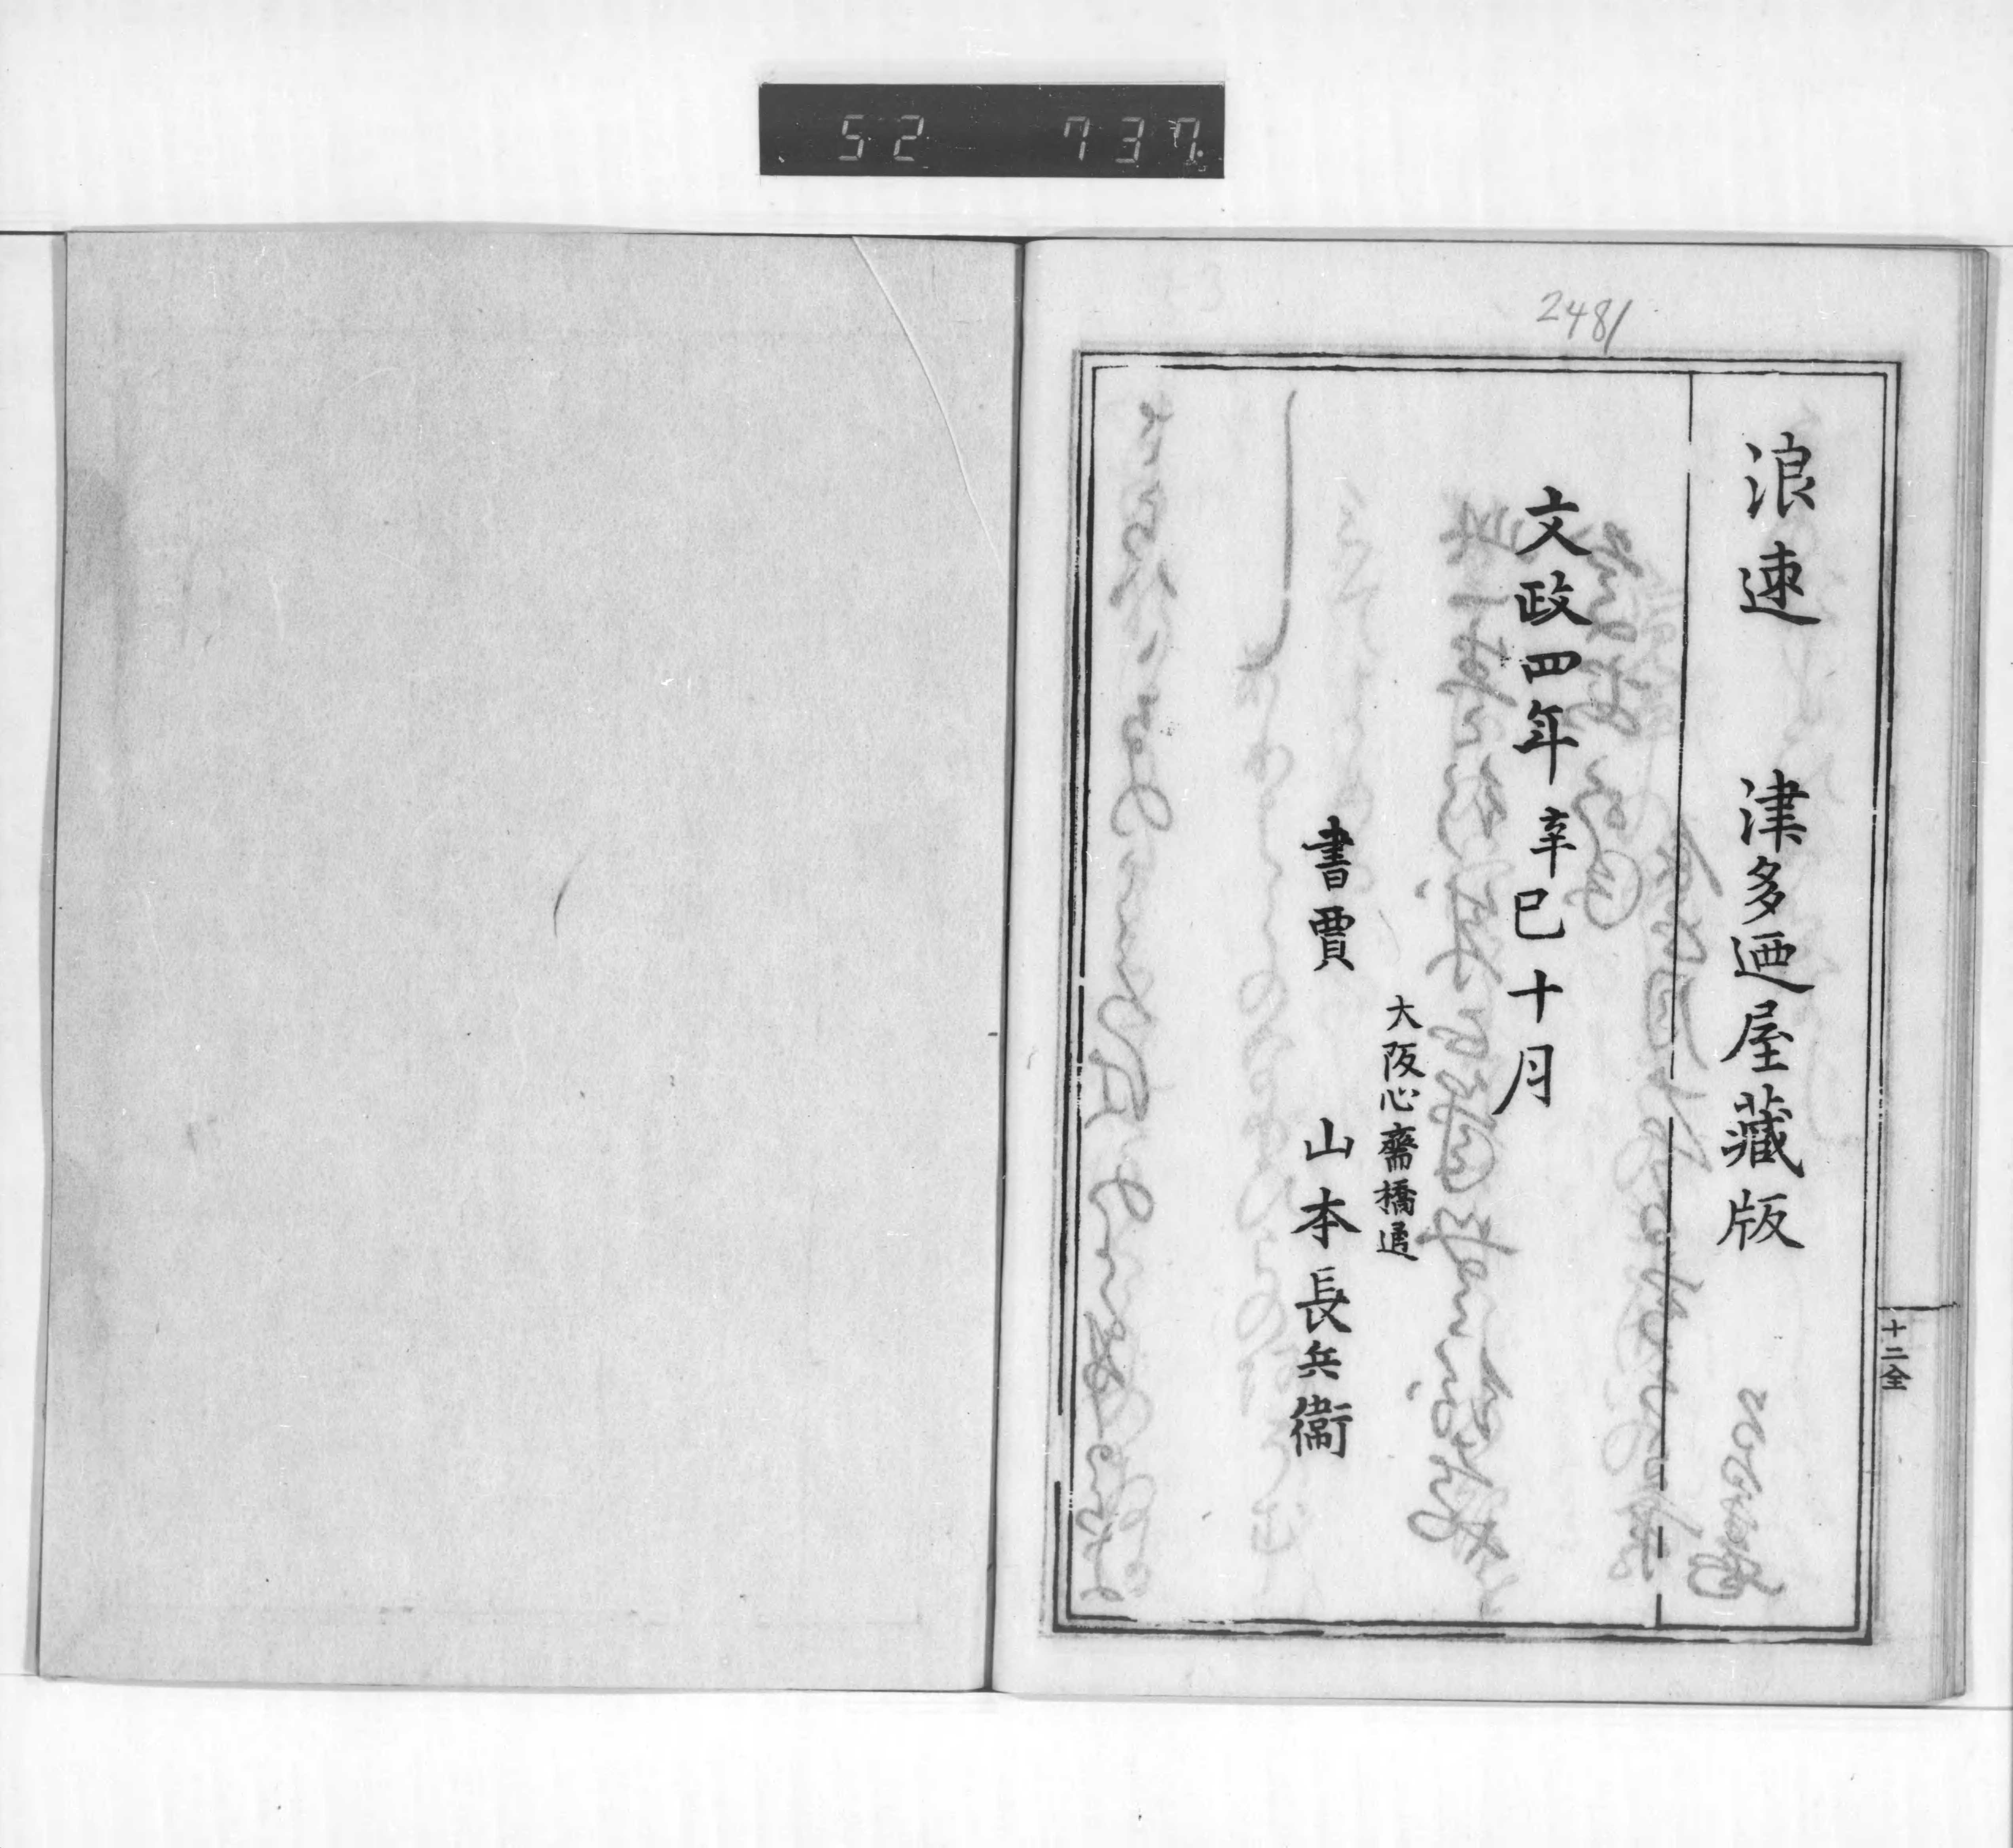 52 737
2481
浪速 津多迺屋藏版
文政四年辛巳十月
大阪心齋橋通
書賈 山本長兵衞
十二全